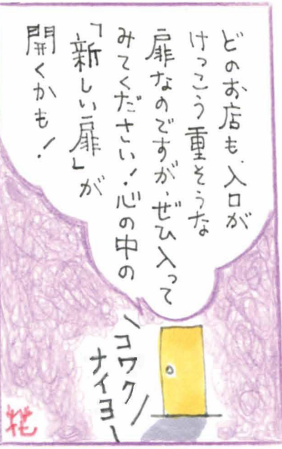 どのお店も、入口が
けっこう重そうな
扉なのですが、ぜひ入って
みてください！心の中の
「新しい扉」が
開くかも！
コワク
ナイヨー
花